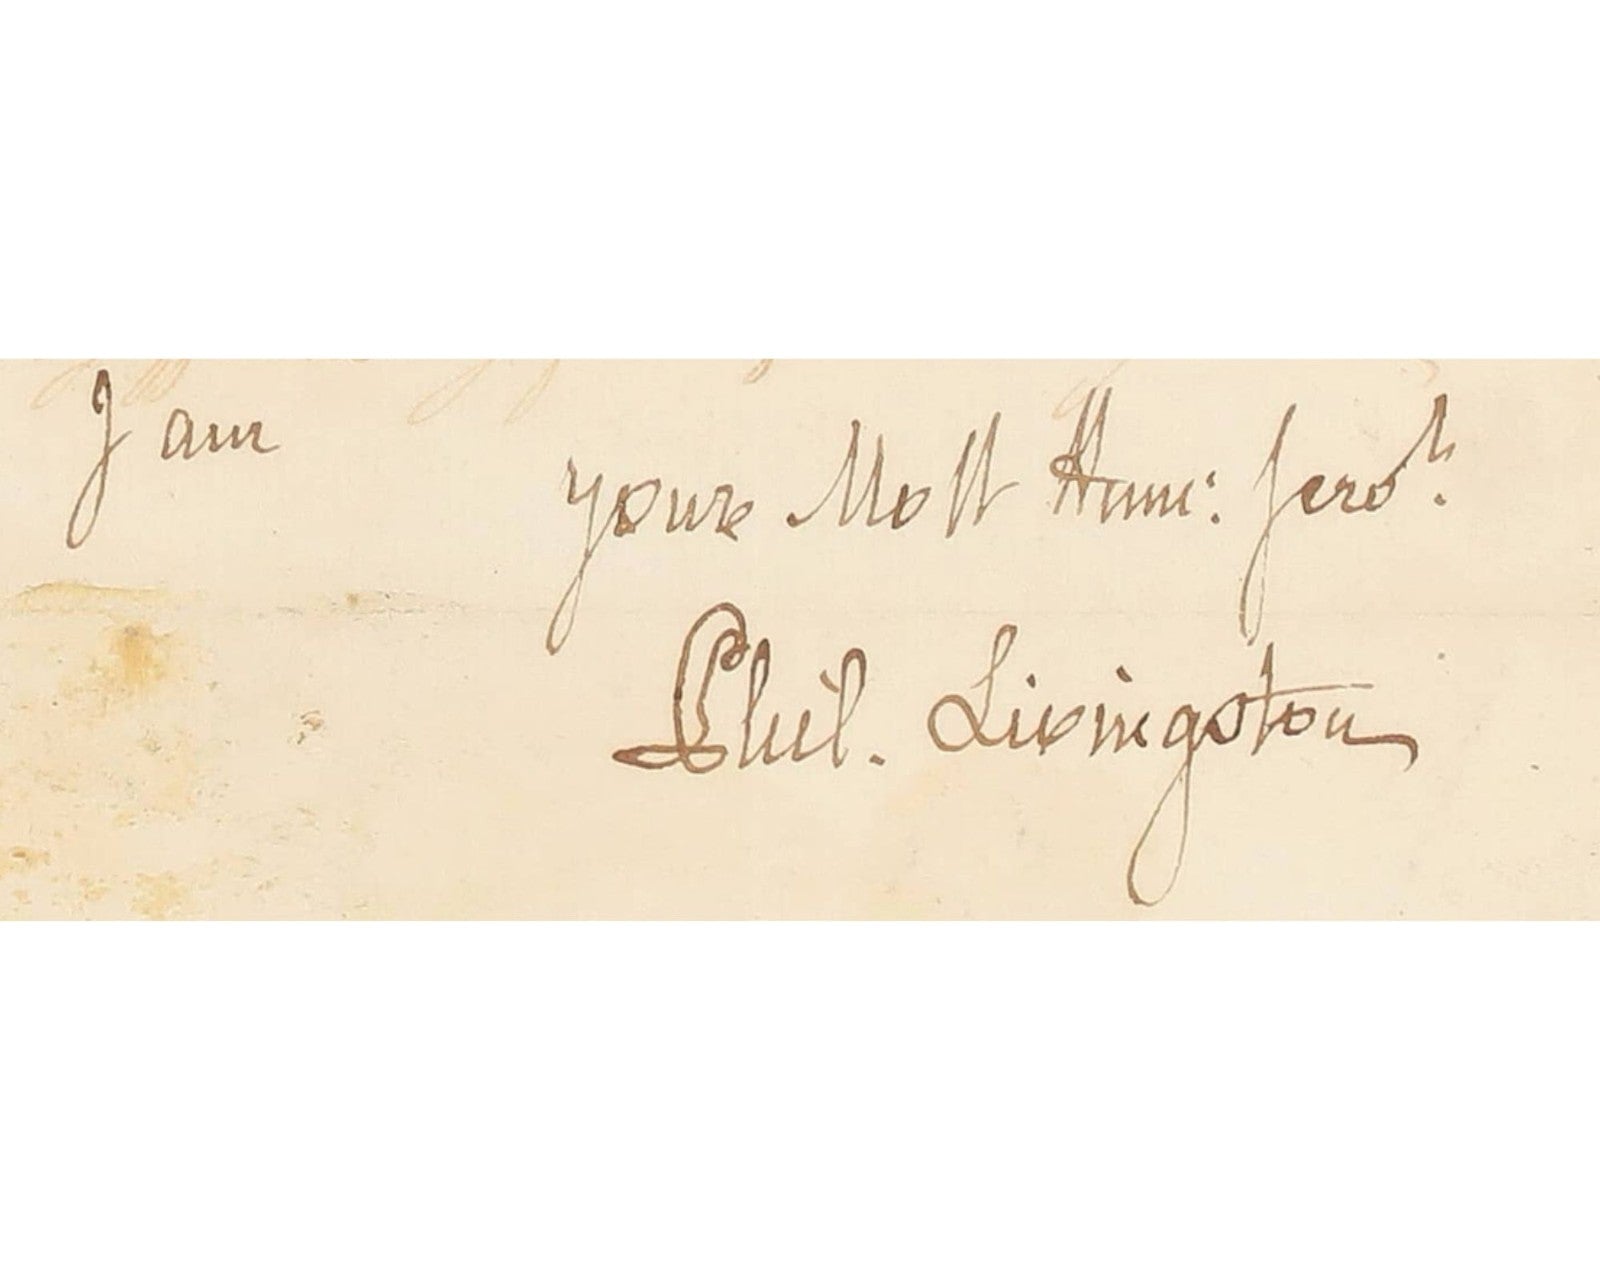 I am
your Most Hum: Servᵗ.
Phil. Livingston